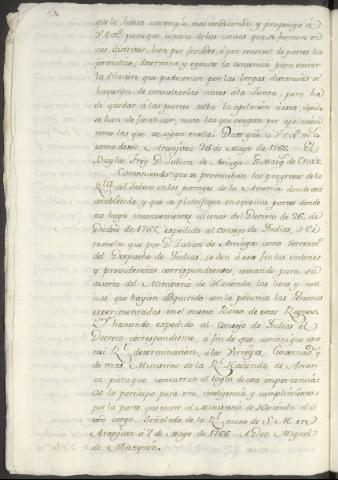 que la Junta contemple mas condecorado y proponga á
V. Exª. para que, en una de las causas que se formen en
sus distritos, bien por fraudes, ó por recursos de partes las
formalize, determine y egecute la sentencia para evitar
la dilacion que padecerian por las largas distancias si
huviesen de consultarlas antes á la Junta, pero ha
de quedar á las partes salva la apelacion á esta, donde
se han de fenecer, tanto las que vengan por apelacion
como las que se sigan en ella. Dios güe. á V. Exª. m. a.
como deseo Aranjuez 26 de Mayo de 1766. El
Baylio Frey D. Julian de Arriaga = Sr. Marq. de Croix.
Conviniendo que se promuevan los progresos de la
Rta. del Tabaco en los parages de la America, donde está
establecida, y que se planifique en aquellas partes donde
no haya inconvenientes al tenor del Decreto de 26. de
Dicibre. de 1765. expedido al Consejo de Indias, he
resuelto que por D. Julian de Arriaga como Secretario
del Despacho de Indias, se den á este fin las ordenes
y providencias correspondientes, tomando para su
acierto del Ministerio de Hacienda las luces y noti-
cias que hayan adquirido con la practica las Personas
experimentadas en el mismo Ramo de estos Reynos.
Y haviendo expedido al Consejo de Indias el
Decreto correspondiente, á fin de que comunique es-
ta mi Rl. determinacion, á los Virreyes, Governadores
y demas Ministros de la Rl. Hacienda de Ameri-
ca para que concurran al logro de esta importancia:
Os lo participo para vra. inteligencia y cumplimiento
por la parte que toca al Ministerio de Hacienda de
vro. cargo. Señalado de la Rl. mano de S. M. en
Aranjuez á 7 de Mayo de 1766. = A Don Miguel
de Muzquiz.